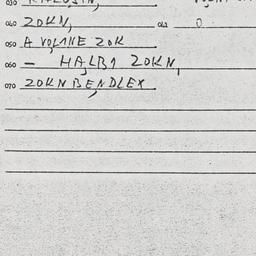 040 ZOKN, 042 0
050 A VOLAKE ZOK
060 – HALBA ZOKN,
070 ZOKN BENDLEX